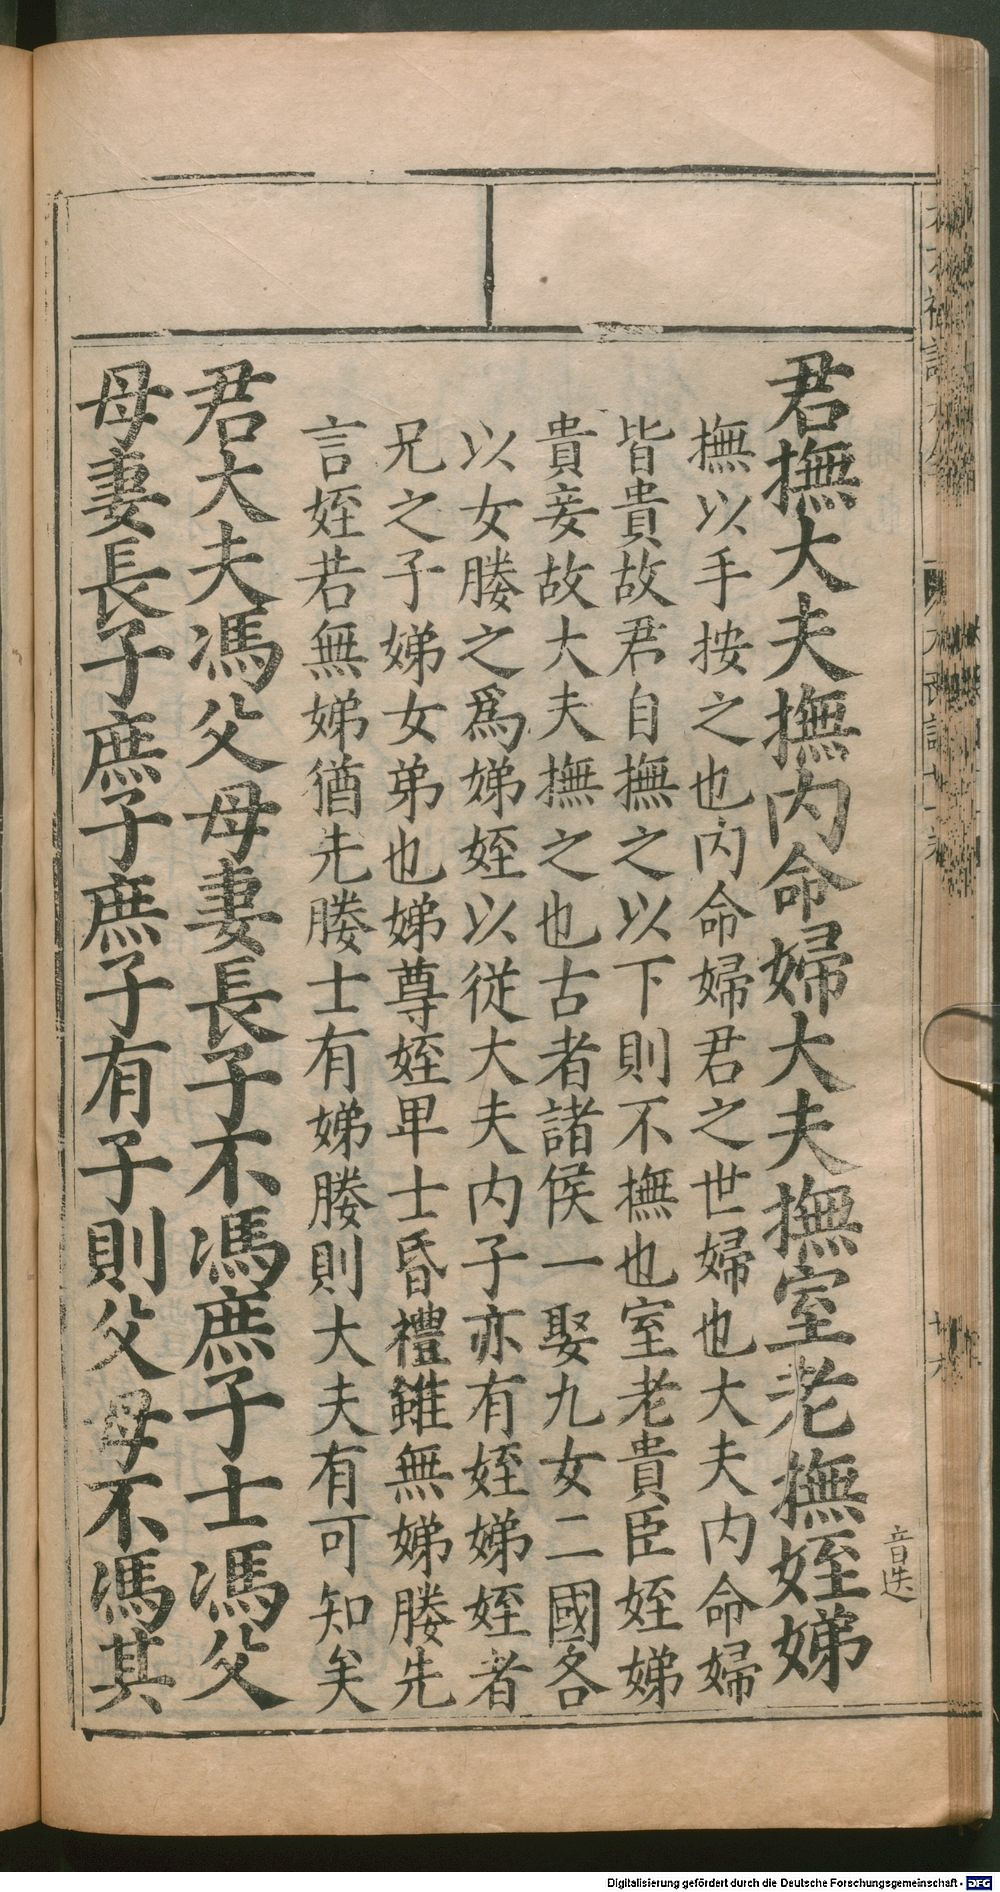 君撫大夫撫内命婦大夫撫室老撫姪娣
音迭
撫以手按之也内命婦君之世婦也大夫内命婦
皆貴故君自撫之以下則不撫也室老貴臣姪娣
貴妾故大夫撫之也古者諸侯一娶九女二國各
以女媵之爲娣姪以従大夫内子亦有姪娣姪者
兄之子娣女弟也娣尊姪卑士昏禮雖無娣媵先
言姪若無娣猶先媵士有娣媵則大夫有可知矣
君大夫馮父母妻長子不馮庶子士馮父
母妻長子庶子庶子有子則父母不馮其
Digitalisierung gefördert durch die Deutsche Forschungsgemeinschaft - DFG